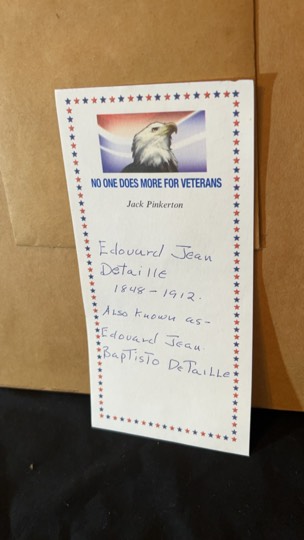 NO ONE DOES MORE FOR VETERANS
Jack Pinkerton
Edouard Jean
Detaille
1848 - 1912.
Also Known as -
Edouard Jean
Baptisto DeTaille